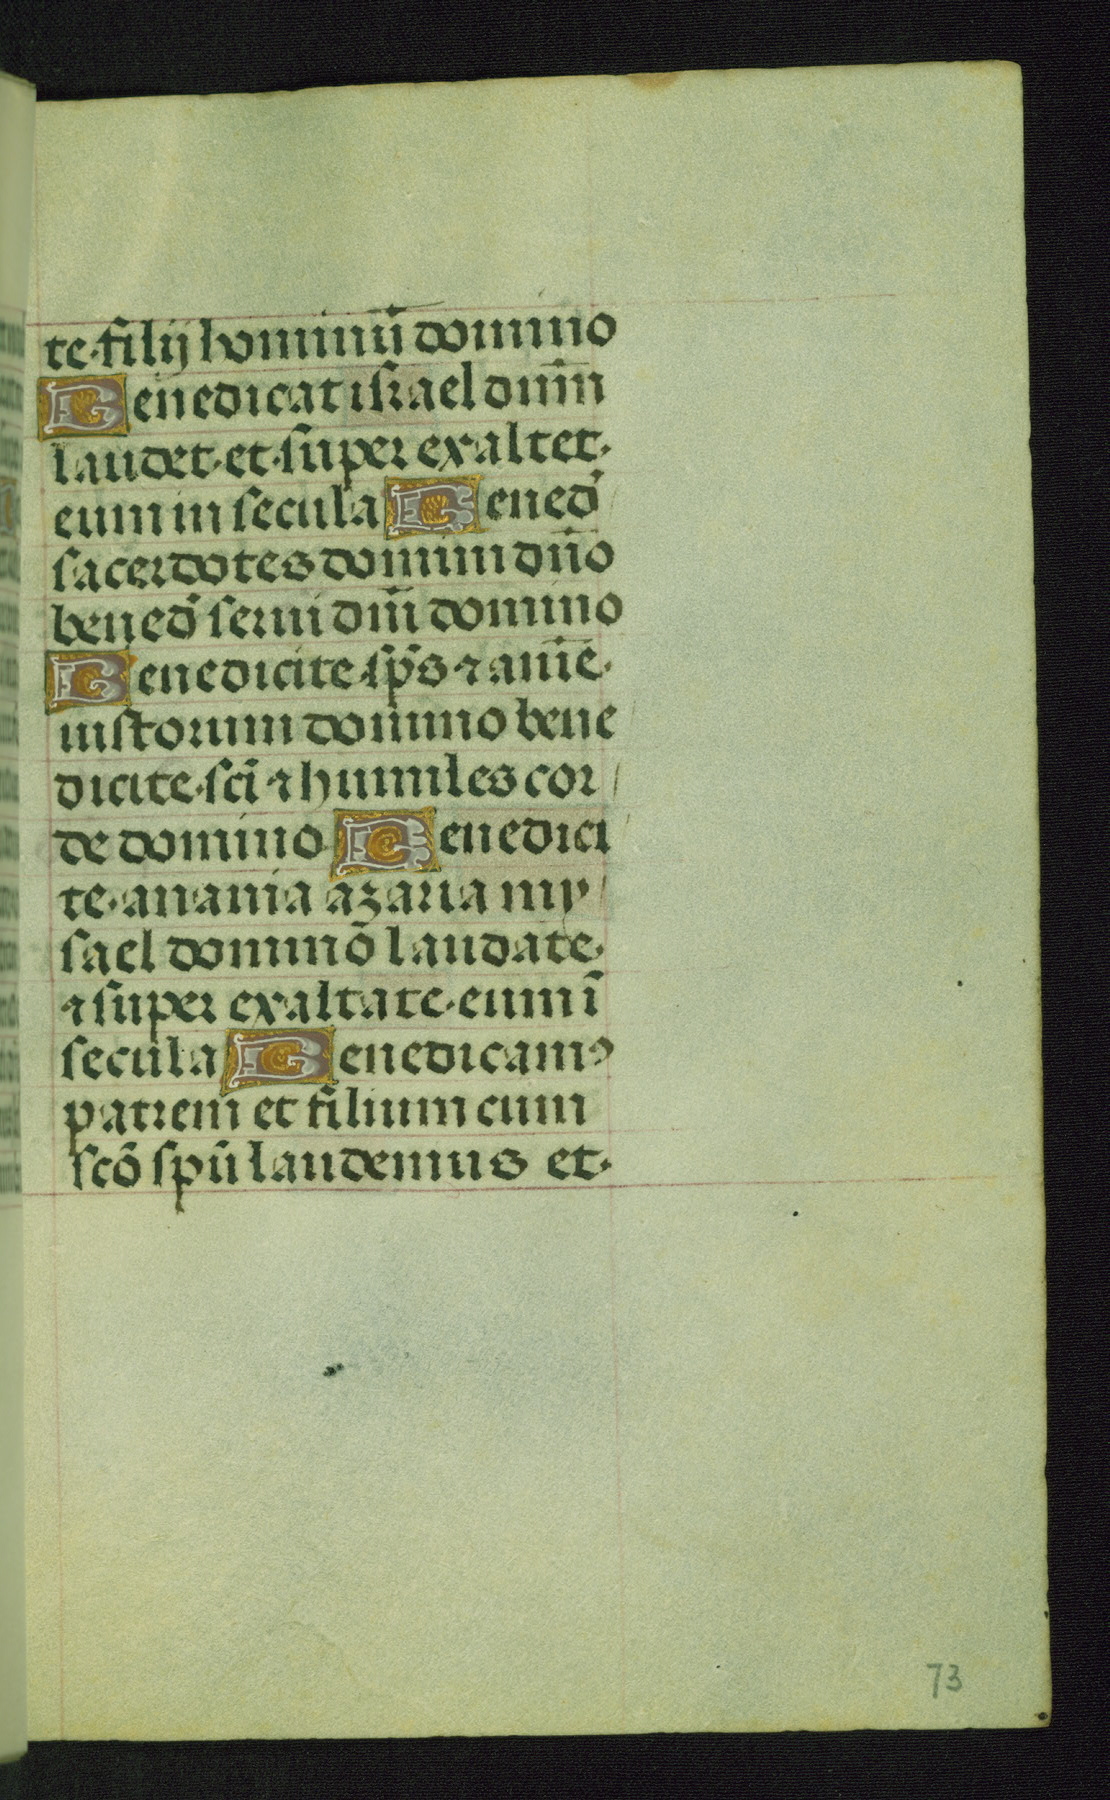 te filij hominū domino
Benedicat israel dn̄m
laudet et super exaltet
eum in secula Bened̄
sacerdotes domini dn̄o
bened̄ serui dn̄i domino
Benedicite sp̄s ⁊ anīe
iustorum domino bene
dicite sc̄i ⁊ humiles cor
de domino Benedici
te anania azaria my
sael dominō laudate
⁊ super exaltate eum ī
secula Benedicamꝰ
patrem et filium cum
sc̄o spū laudemus et
73